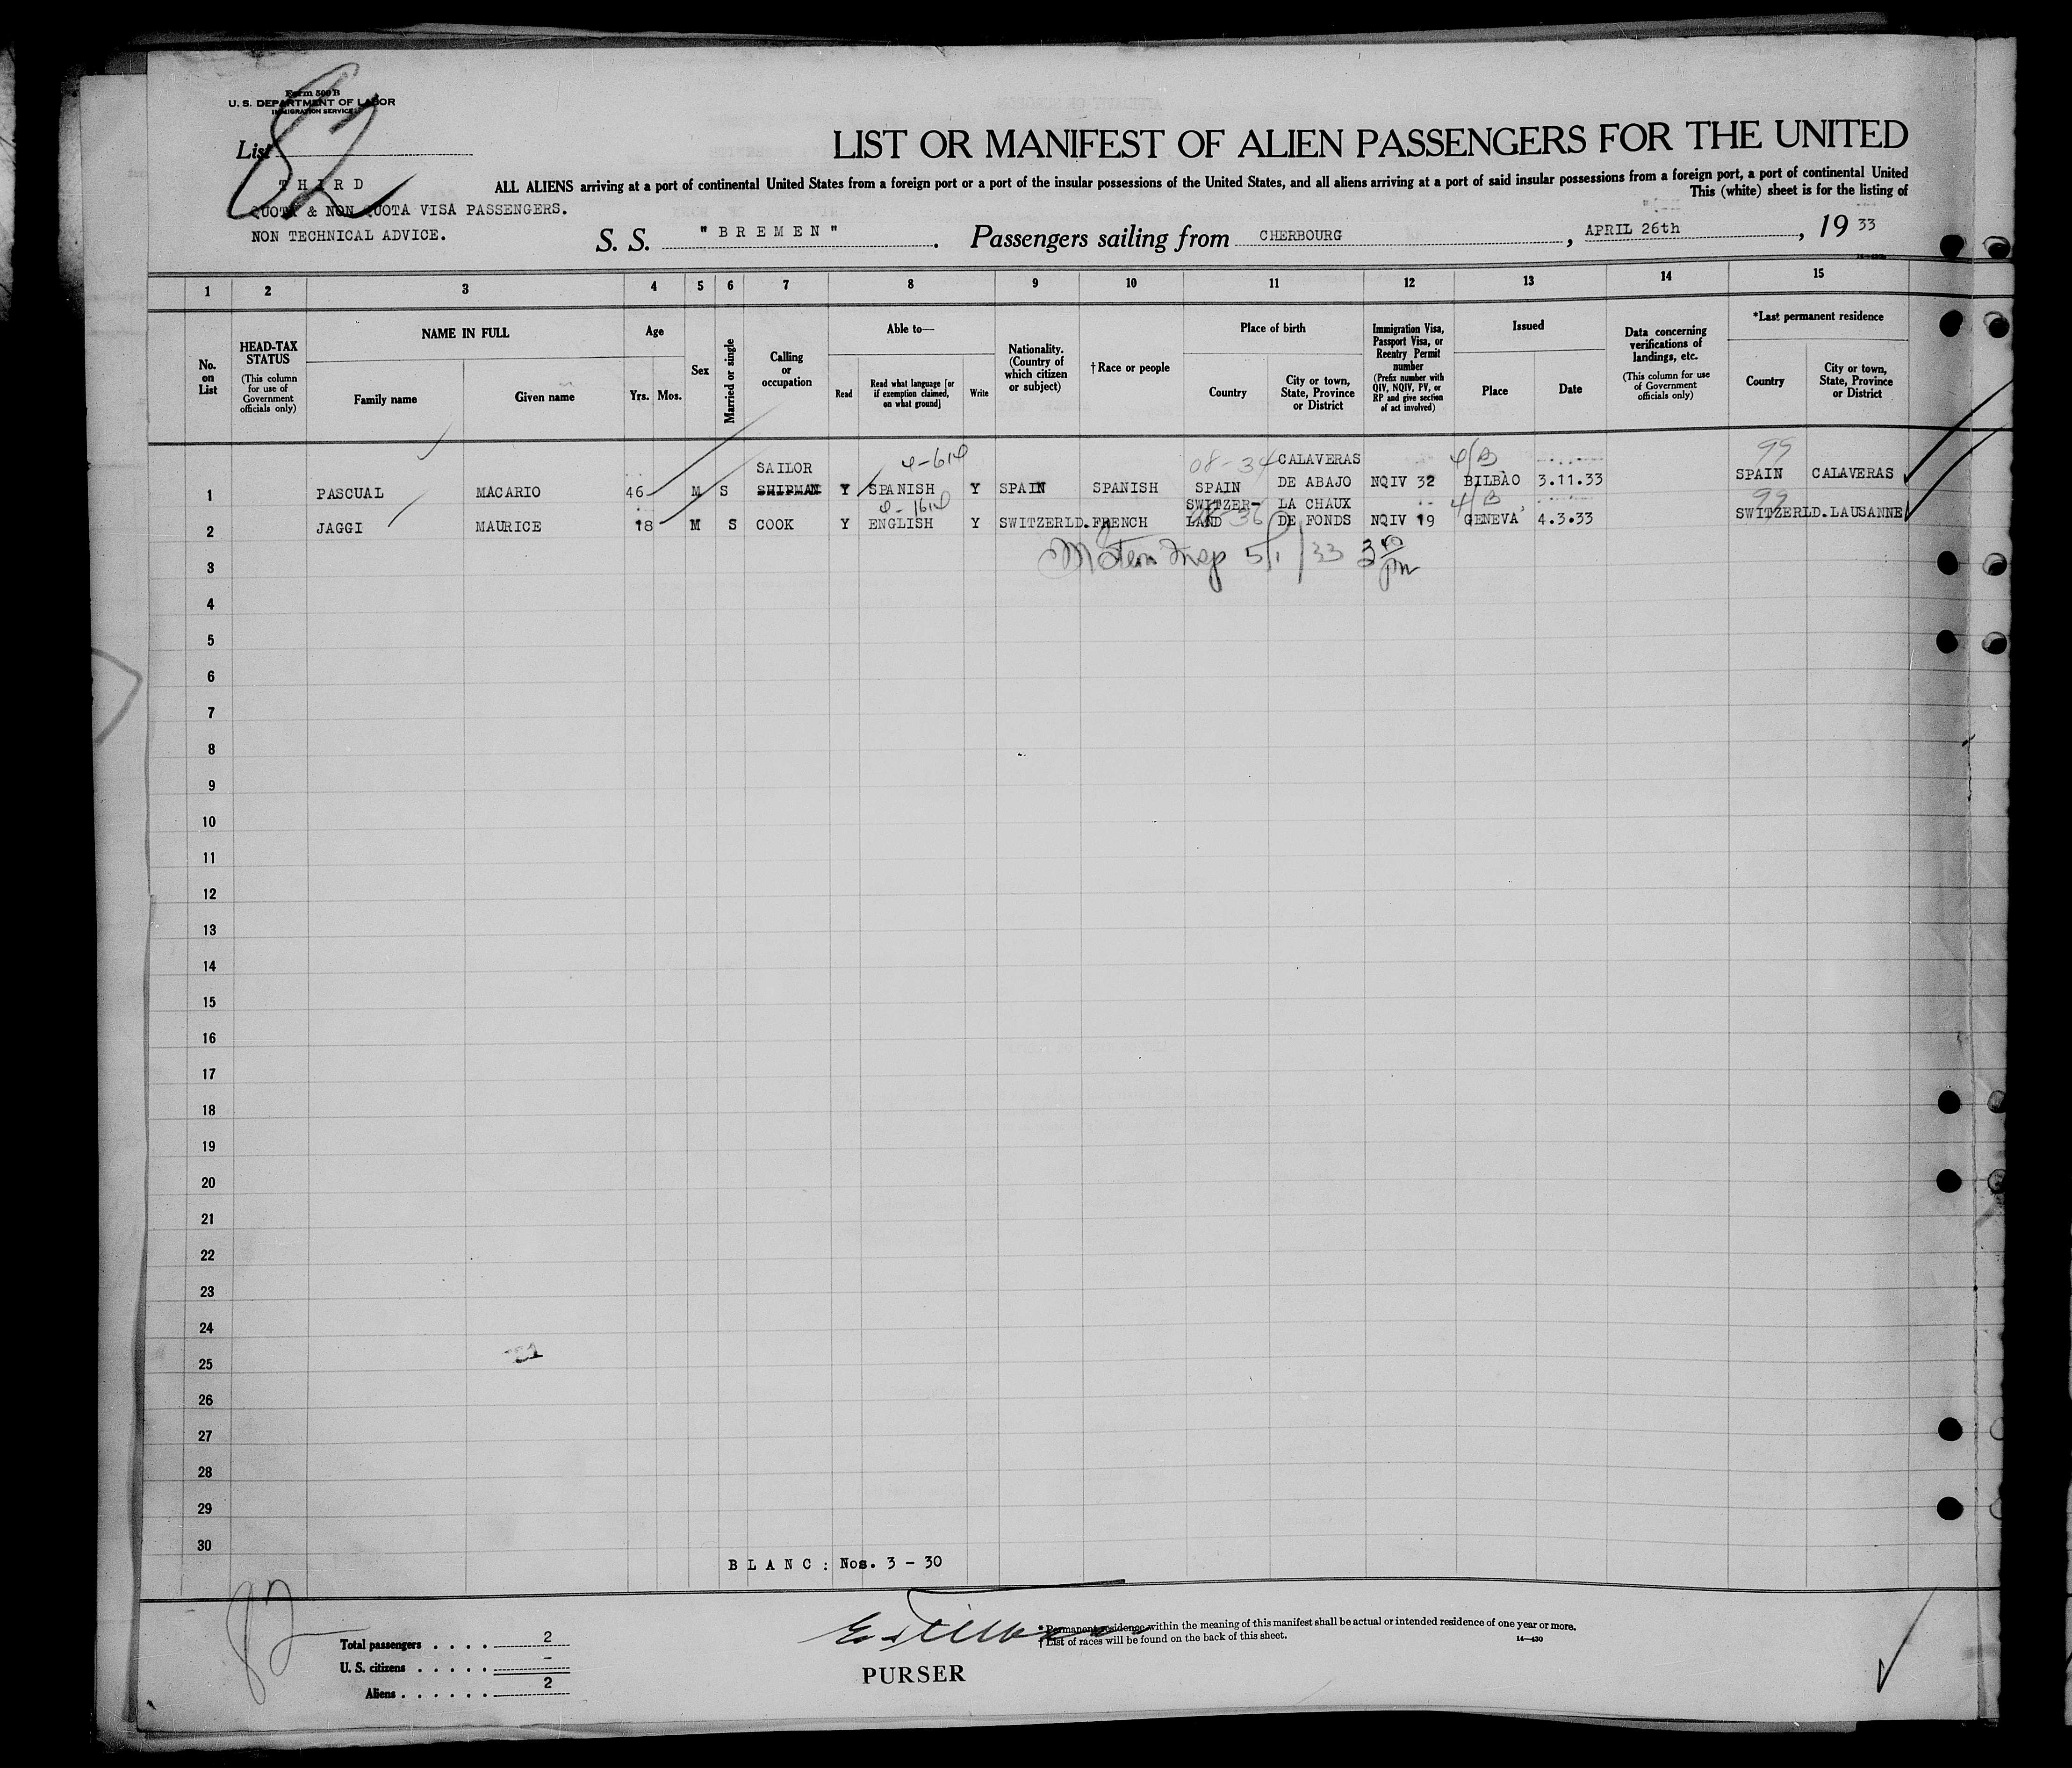 Form 500 B
U. S. DEPARTMENT OF LABOR
IMMIGRATION SERVICE
List 82
LIST OR MANIFEST OF ALIEN PASSENGERS FOR THE UNITED
THIRD
QUOTA & NON QUOTA VISA PASSENGERS.
NON TECHNICAL ADVICE.
ALL ALIENS arriving at a port of continental United States from a foreign port or a port of the insular possessions of the United States, and all aliens arriving at a port of said insular possessions from a foreign port, a port of continental United
This (white) sheet is for the listing of
S. S. "BREMEN". Passengers sailing from CHERBOURG, APRIL 26th, 19 33
1 2 3 4 5 6 7 8 9 10 11 12 13 14 15
No. on List
HEAD-TAX STATUS
(This column for use of Government officials only)
NAME IN FULL
Family name Given name
Age
Yrs. Mos.
Sex
Married or single
Calling or occupation
Able to—
Read
Read what language [or if exemption claimed, on what ground]
Write
Nationality. (Country of which citizen or subject)
† Race or people
Place of birth
Country
City or town, State, Province or District
Immigration Visa, Passport Visa, or Reentry Permit number
(Prefix number with QIV, NQIV, PV, or RP and give section of act involved)
Issued
Place Date
Data concerning verifications of landings, etc.
(This column for use of Government officials only)
*Last permanent residence
Country
City or town, State, Province or District
4-614 08-34 4/B 99
1 PASCUAL MACARIO 46 M S SAILOR SHIPMAN Y SPANISH Y SPAIN SPANISH SPAIN CALAVERAS DE ABAJO NQIV 32 BILBAO 3.11.33 SPAIN CALAVERAS
4-1614 08-36 4/B 99
2 JAGGI MAURICE 18 M S COOK Y ENGLISH Y SWITZERLD. FRENCH SWITZER-LAND LA CHAUX DE FONDS NQIV 19 GENEVA 4.3.33 SWITZERLD. LAUSANNE
Insp 5/1/33 3 40 pm
3
4
5
6
7
8
9
10
11
12
13
14
15
16
17
18
19
20
21
22
23
24
25
26
27
28
29
30
BLANC: Nos. 3 - 30
82
Total passengers . . . . 2
U. S. citizens . . . . . -
Aliens . . . . . . 2
PURSER
* Permanent residence within the meaning of this manifest shall be actual or intended residence of one year or more.
† List of races will be found on the back of this sheet.
14—430